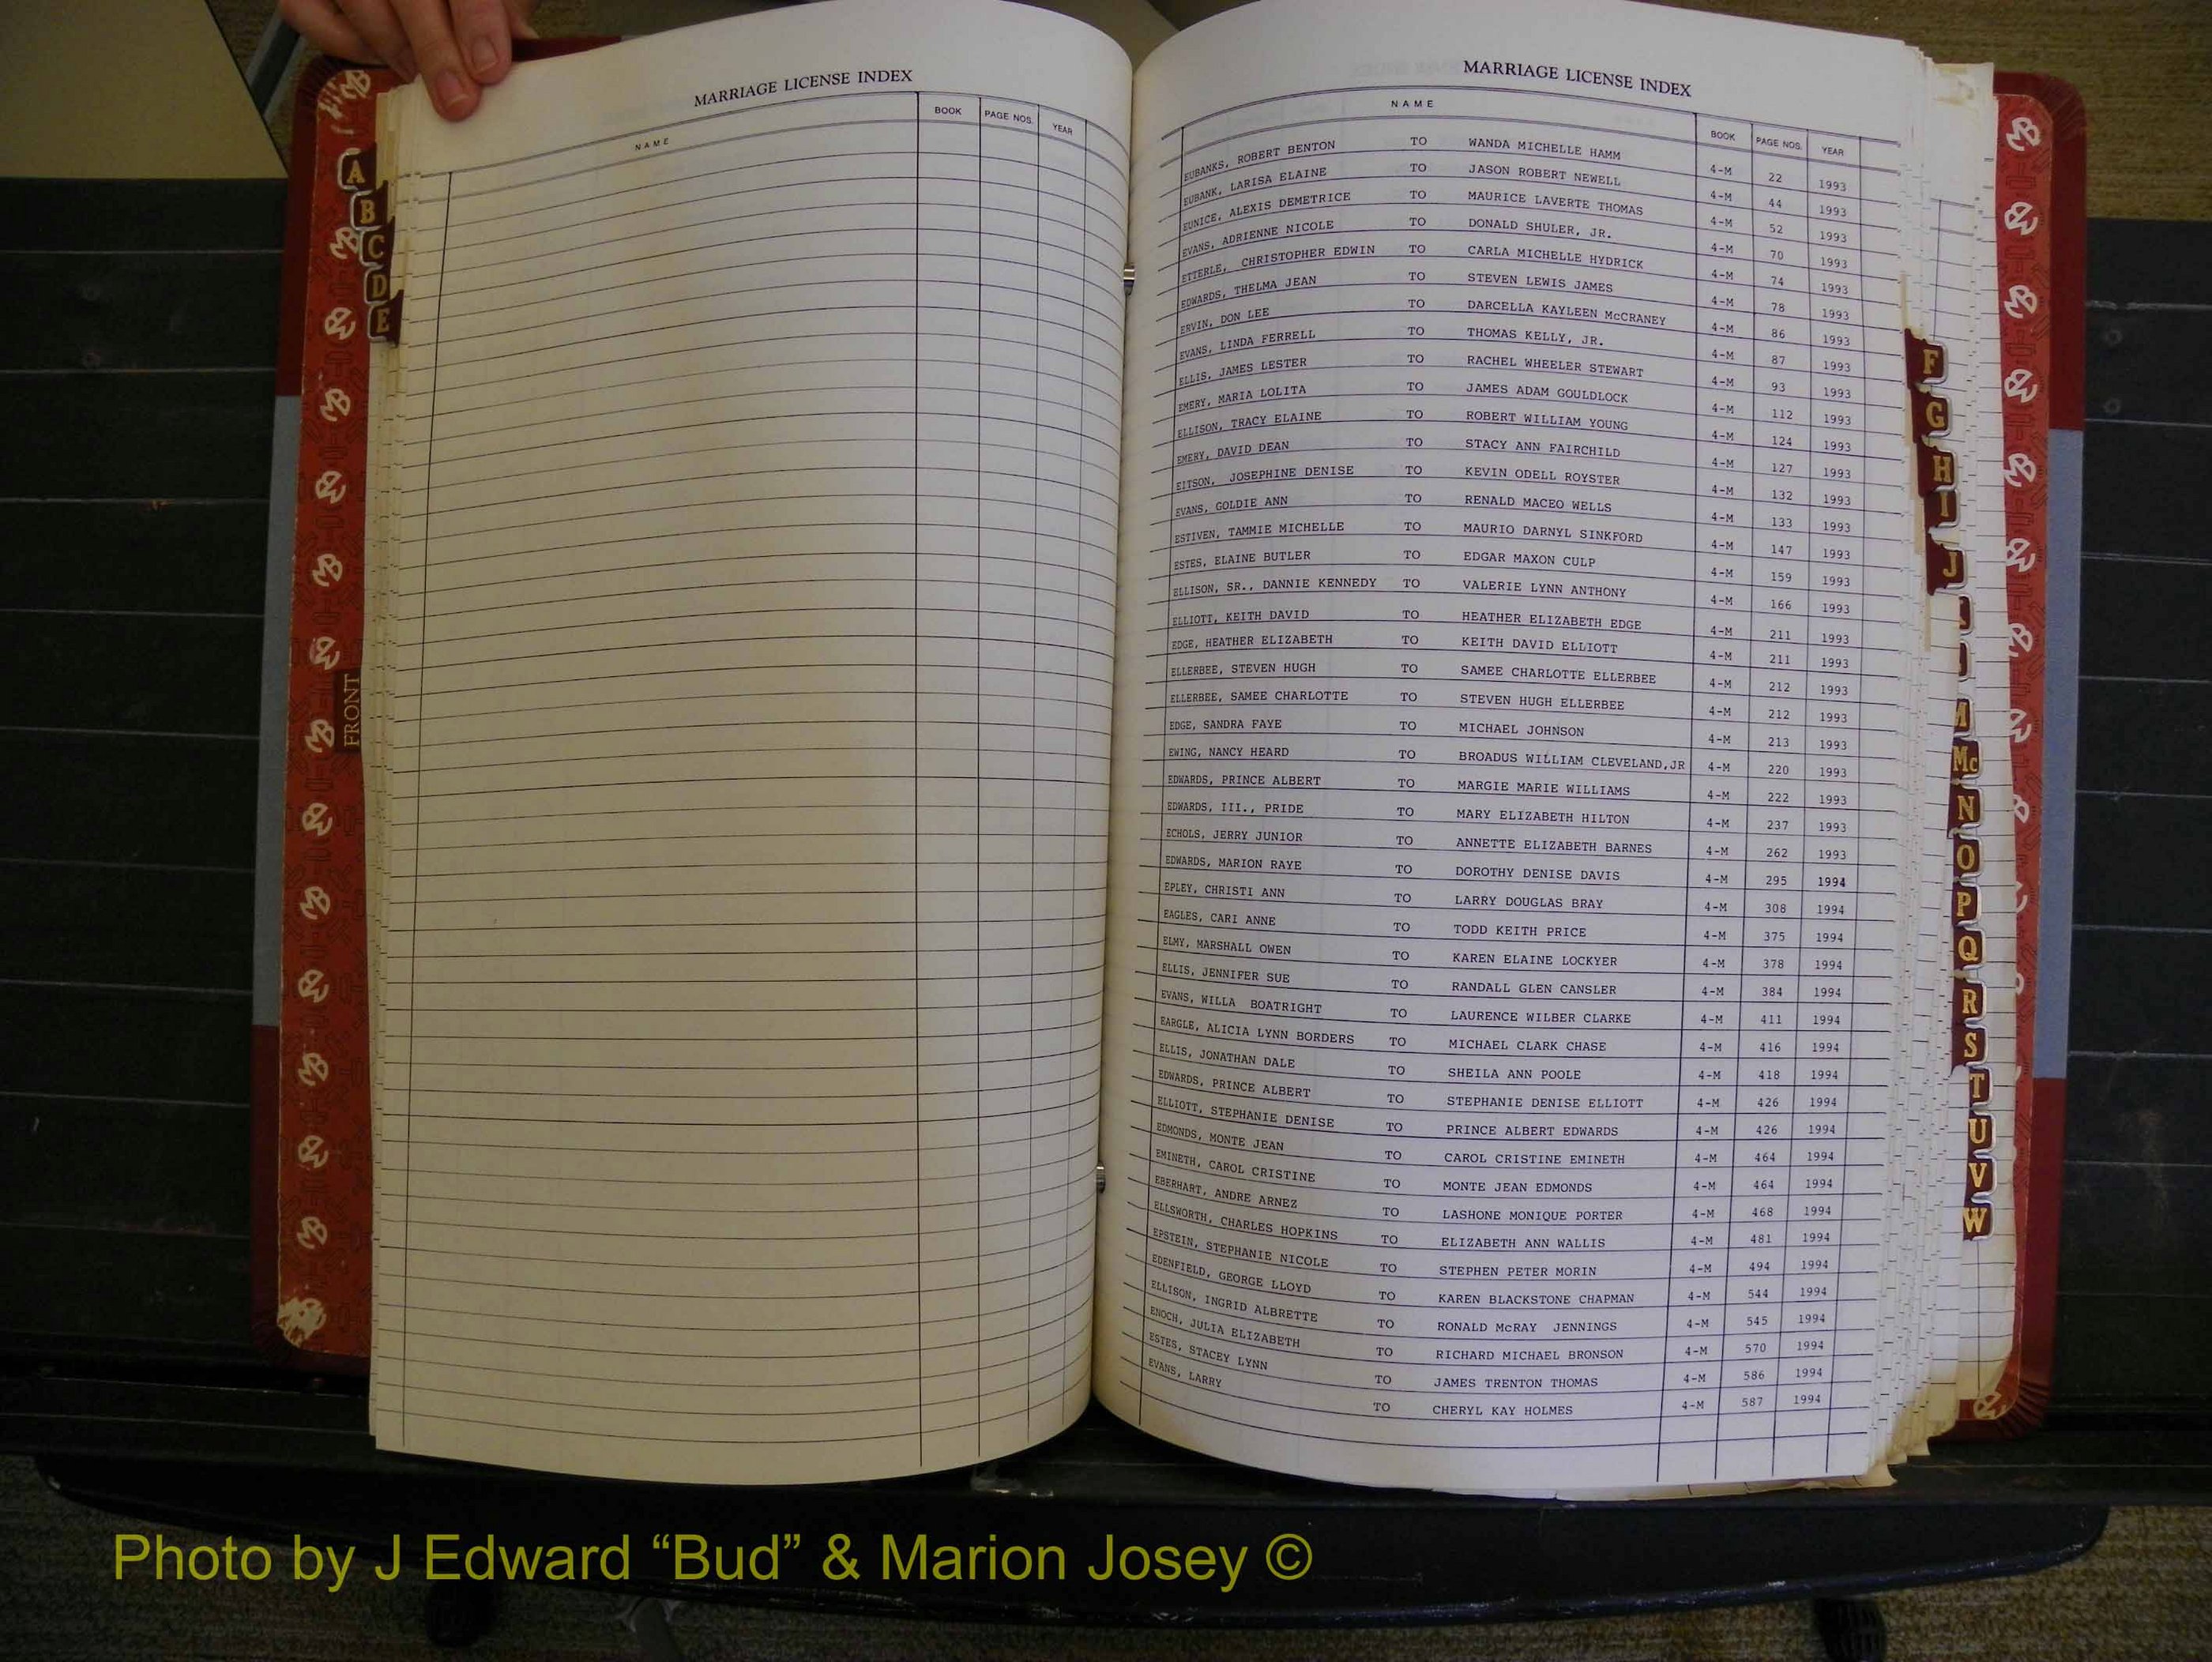 MARRIAGE LICENSE INDEX
NAME BOOK PAGE NOS. YEAR
A
B
C
D
E
FRONT
MARRIAGE LICENSE INDEX
NAME BOOK PAGE NOS. YEAR
EUBANKS, ROBERT BENTON TO WANDA MICHELLE HAMM 4-M 22 1993
EUBANK, LARISA ELAINE TO JASON ROBERT NEWELL 4-M 44 1993
EUNICE, ALEXIS DEMETRICE TO MAURICE LAVERTE THOMAS 4-M 52 1993
EVANS, ADRIENNE NICOLE TO DONALD SHULER, JR. 4-M 70 1993
ETTERLE, CHRISTOPHER EDWIN TO CARLA MICHELLE HYDRICK 4-M 74 1993
EDWARDS, THELMA JEAN TO STEVEN LEWIS JAMES 4-M 78 1993
ERVIN, DON LEE TO DARCELLA KAYLEEN McCRANEY 4-M 86 1993
EVANS, LINDA FERRELL TO THOMAS KELLY, JR. 4-M 87 1993
ELLIS, JAMES LESTER TO RACHEL WHEELER STEWART 4-M 93 1993
EMERY, MARIA LOLITA TO JAMES ADAM GOULDLOCK 4-M 112 1993
ELLISON, TRACY ELAINE TO ROBERT WILLIAM YOUNG 4-M 124 1993
EMERY, DAVID DEAN TO STACY ANN FAIRCHILD 4-M 127 1993
EITSON, JOSEPHINE DENISE TO KEVIN ODELL ROYSTER 4-M 132 1993
EVANS, GOLDIE ANN TO RENALD MACEO WELLS 4-M 133 1993
ESTIVEN, TAMMIE MICHELLE TO MAURIO DARNYL SINKFORD 4-M 147 1993
ESTES, ELAINE BUTLER TO EDGAR MAXON CULP 4-M 159 1993
ELLISON, SR., DANNIE KENNEDY TO VALERIE LYNN ANTHONY 4-M 166 1993
ELLIOTT, KEITH DAVID TO HEATHER ELIZABETH EDGE 4-M 211 1993
EDGE, HEATHER ELIZABETH TO KEITH DAVID ELLIOTT 4-M 211 1993
ELLERBEE, STEVEN HUGH TO SAMEE CHARLOTTE ELLERBEE 4-M 212 1993
ELLERBEE, SAMEE CHARLOTTE TO STEVEN HUGH ELLERBEE 4-M 212 1993
EDGE, SANDRA FAYE TO MICHAEL JOHNSON 4-M 213 1993
EWING, NANCY HEARD TO BROADUS WILLIAM CLEVELAND,JR 4-M 220 1993
EDWARDS, PRINCE ALBERT TO MARGIE MARIE WILLIAMS 4-M 222 1993
EDWARDS, III., PRIDE TO MARY ELIZABETH HILTON 4-M 237 1993
ECHOLS, JERRY JUNIOR TO ANNETTE ELIZABETH BARNES 4-M 262 1993
EDWARDS, MARION RAYE TO DOROTHY DENISE DAVIS 4-M 295 1994
EPLEY, CHRISTI ANN TO LARRY DOUGLAS BRAY 4-M 308 1994
EAGLES, CARI ANNE TO TODD KEITH PRICE 4-M 375 1994
ELMY, MARSHALL OWEN TO KAREN ELAINE LOCKYER 4-M 378 1994
ELLIS, JENNIFER SUE TO RANDALL GLEN CANSLER 4-M 384 1994
EVANS, WILLA BOATRIGHT TO LAURENCE WILBER CLARKE 4-M 411 1994
EARGLE, ALICIA LYNN BORDERS TO MICHAEL CLARK CHASE 4-M 416 1994
ELLIS, JONATHAN DALE TO SHEILA ANN POOLE 4-M 418 1994
EDWARDS, PRINCE ALBERT TO STEPHANIE DENISE ELLIOTT 4-M 426 1994
ELLIOTT, STEPHANIE DENISE TO PRINCE ALBERT EDWARDS 4-M 426 1994
EDMONDS, MONTE JEAN TO CAROL CRISTINE EMINETH 4-M 464 1994
EMINETH, CAROL CRISTINE TO MONTE JEAN EDMONDS 4-M 464 1994
EBERHART, ANDRE ARNEZ TO LASHONE MONIQUE PORTER 4-M 468 1994
ELLSWORTH, CHARLES HOPKINS TO ELIZABETH ANN WALLIS 4-M 481 1994
EPSTEIN, STEPHANIE NICOLE TO STEPHEN PETER MORIN 4-M 494 1994
EDENFIELD, GEORGE LLOYD TO KAREN BLACKSTONE CHAPMAN 4-M 544 1994
ELLISON, INGRID ALBRETTE TO RONALD McRAY JENNINGS 4-M 545 1994
ENOCH, JULIA ELIZABETH TO RICHARD MICHAEL BRONSON 4-M 570 1994
ESTES, STACEY LYNN TO JAMES TRENTON THOMAS 4-M 586 1994
EVANS, LARRY TO CHERYL KAY HOLMES 4-M 587 1994
F
G
H
I
J
M
Mc
N
O
P
Q
R
S
T
U
V
W
Photo by J Edward “Bud” & Marion Josey ©